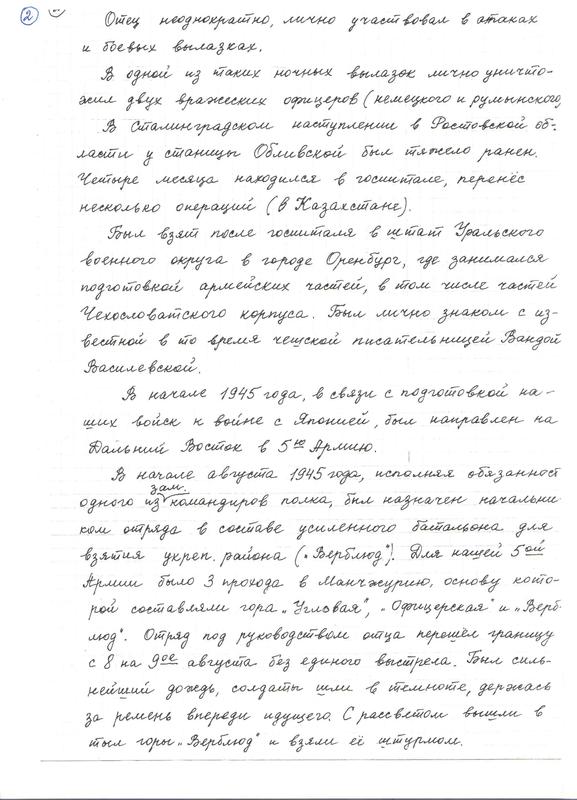 2
Отец неоднократно, лично участвовал в атаках
и боевых вылазках.
В одной из таких ночных вылазок лично уничто-
жил двух вражеских офицеров (немецкого и румынского)
В Сталинградском наступлении в Ростовской об-
ласти у станицы Обливской был тяжело ранен.
Четыре месяца находился в госпитале, перенёс
несколько операций (в Казахстане).
Был взят после госпиталя в штат Уральского
военного округа в городе Оренбург, где занимался
подготовкой армейских частей, в том числе частей
Чехословатского корпуса. Был лично знаком с из-
вестной в то время чешской писательницей Вандой
Василевской.
В начале 1945 года, в связи с подготовкой на-
ших войск к войне с Японией, был направлен на
Дальний Восток в 5ую Армию.
В начале августа 1945 года, исполняя обязанност
зам.
одного из командиров полка, был назначен начальни-
ком отряда в составе усиленного батальона для
взятия укреп. района („Верблюд"). Для нашей 5ой
Армии было 3 прохода в Манчжурию, основу кото-
рой составляли гора „Угловая", „Офицерская" и „Верб-
люд". Отряд под руководством отца перешёл границу
с 8 на 9ое августа без единого выстрела. Был силь-
нейший дождь, солдаты шли в темноте, держась
за ремень впереди идущего. С рассветом вышли в
тыл горы „Верблюд" и взяли её штурмом.